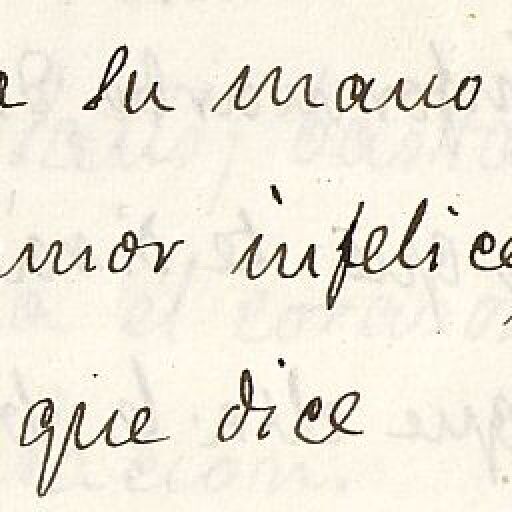 a su mano
amor infelice,
que dice